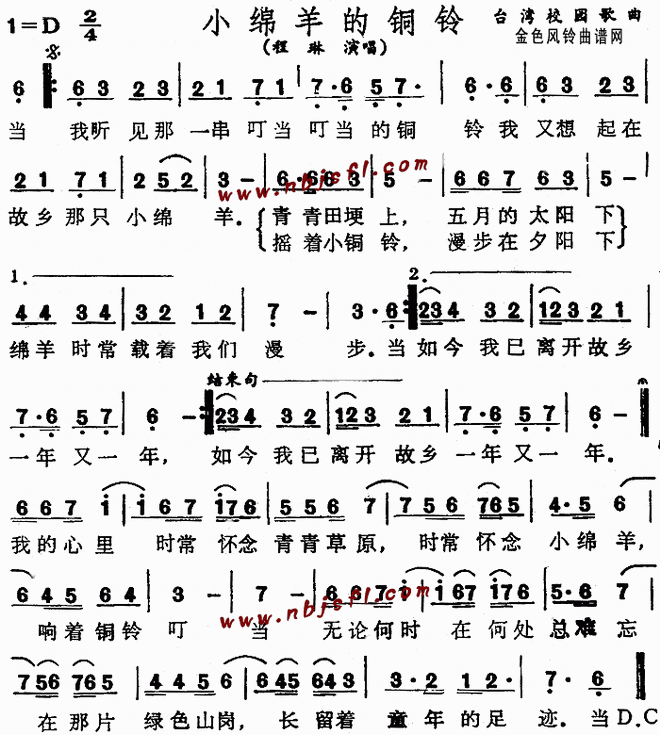 1=D 2/4 小绵羊的铜铃 台湾校园歌曲
(程琳 演唱) 金色风铃曲谱网
6 6 3 2 3 | 2 1 7 1 | 7·6 5 7· | 6·6 | 6 3 2 3
当 我听 见那 一串 叮当 叮当 的铜 铃我 又想 起在
2 1 7 1 | 2 5 2 | 3 - | 6·6 6 3 | 5 - | 6 6 7 6 3 | 5 -
故乡 那只 小绵 羊. 青青田埂 上, 五月的 太阳 下
摇着小铜 铃, 漫步在 夕阳 下
www.nbjsfl.com
1. 2.
4 4 3 4 | 3 2 1 2 | 7 - | 3·6 2 3 4 3 2 | 1 2 3 2 1 |
绵羊 时常 载着 我们 漫 步. 当 如今 我已 离开 故乡
结束句
7·6 5 7 | 6 - 2 3 4 3 2 | 1 2 3 2 1 | 7·6 5 7 | 6 -
一年 又一 年, 如今 我已 离开 故乡 一年 又一 年.
6 6 7 i | i 6 7 i 7 6 | 5 5 6 7 | 7 5 6 7 6 5 | 4·5 6
我的心里 时常 怀念 青青草原, 时常 怀念 小绵 羊,
6 4 5 6 4 | 3 - | 7 - | 6 6 7 i | i 6 7 i 7 6 | 5·6 7
响着 铜铃 叮 当 无论何时 在 何处 总难 忘
www.nbjsfl.com
7 5 6 7 6 5 | 4 4 5 6 | 6 4 5 6 4 3 | 3·2 1 2· | 7·6
在 那片 绿色山岗, 长 留着 童年 的足 迹. 当D.C